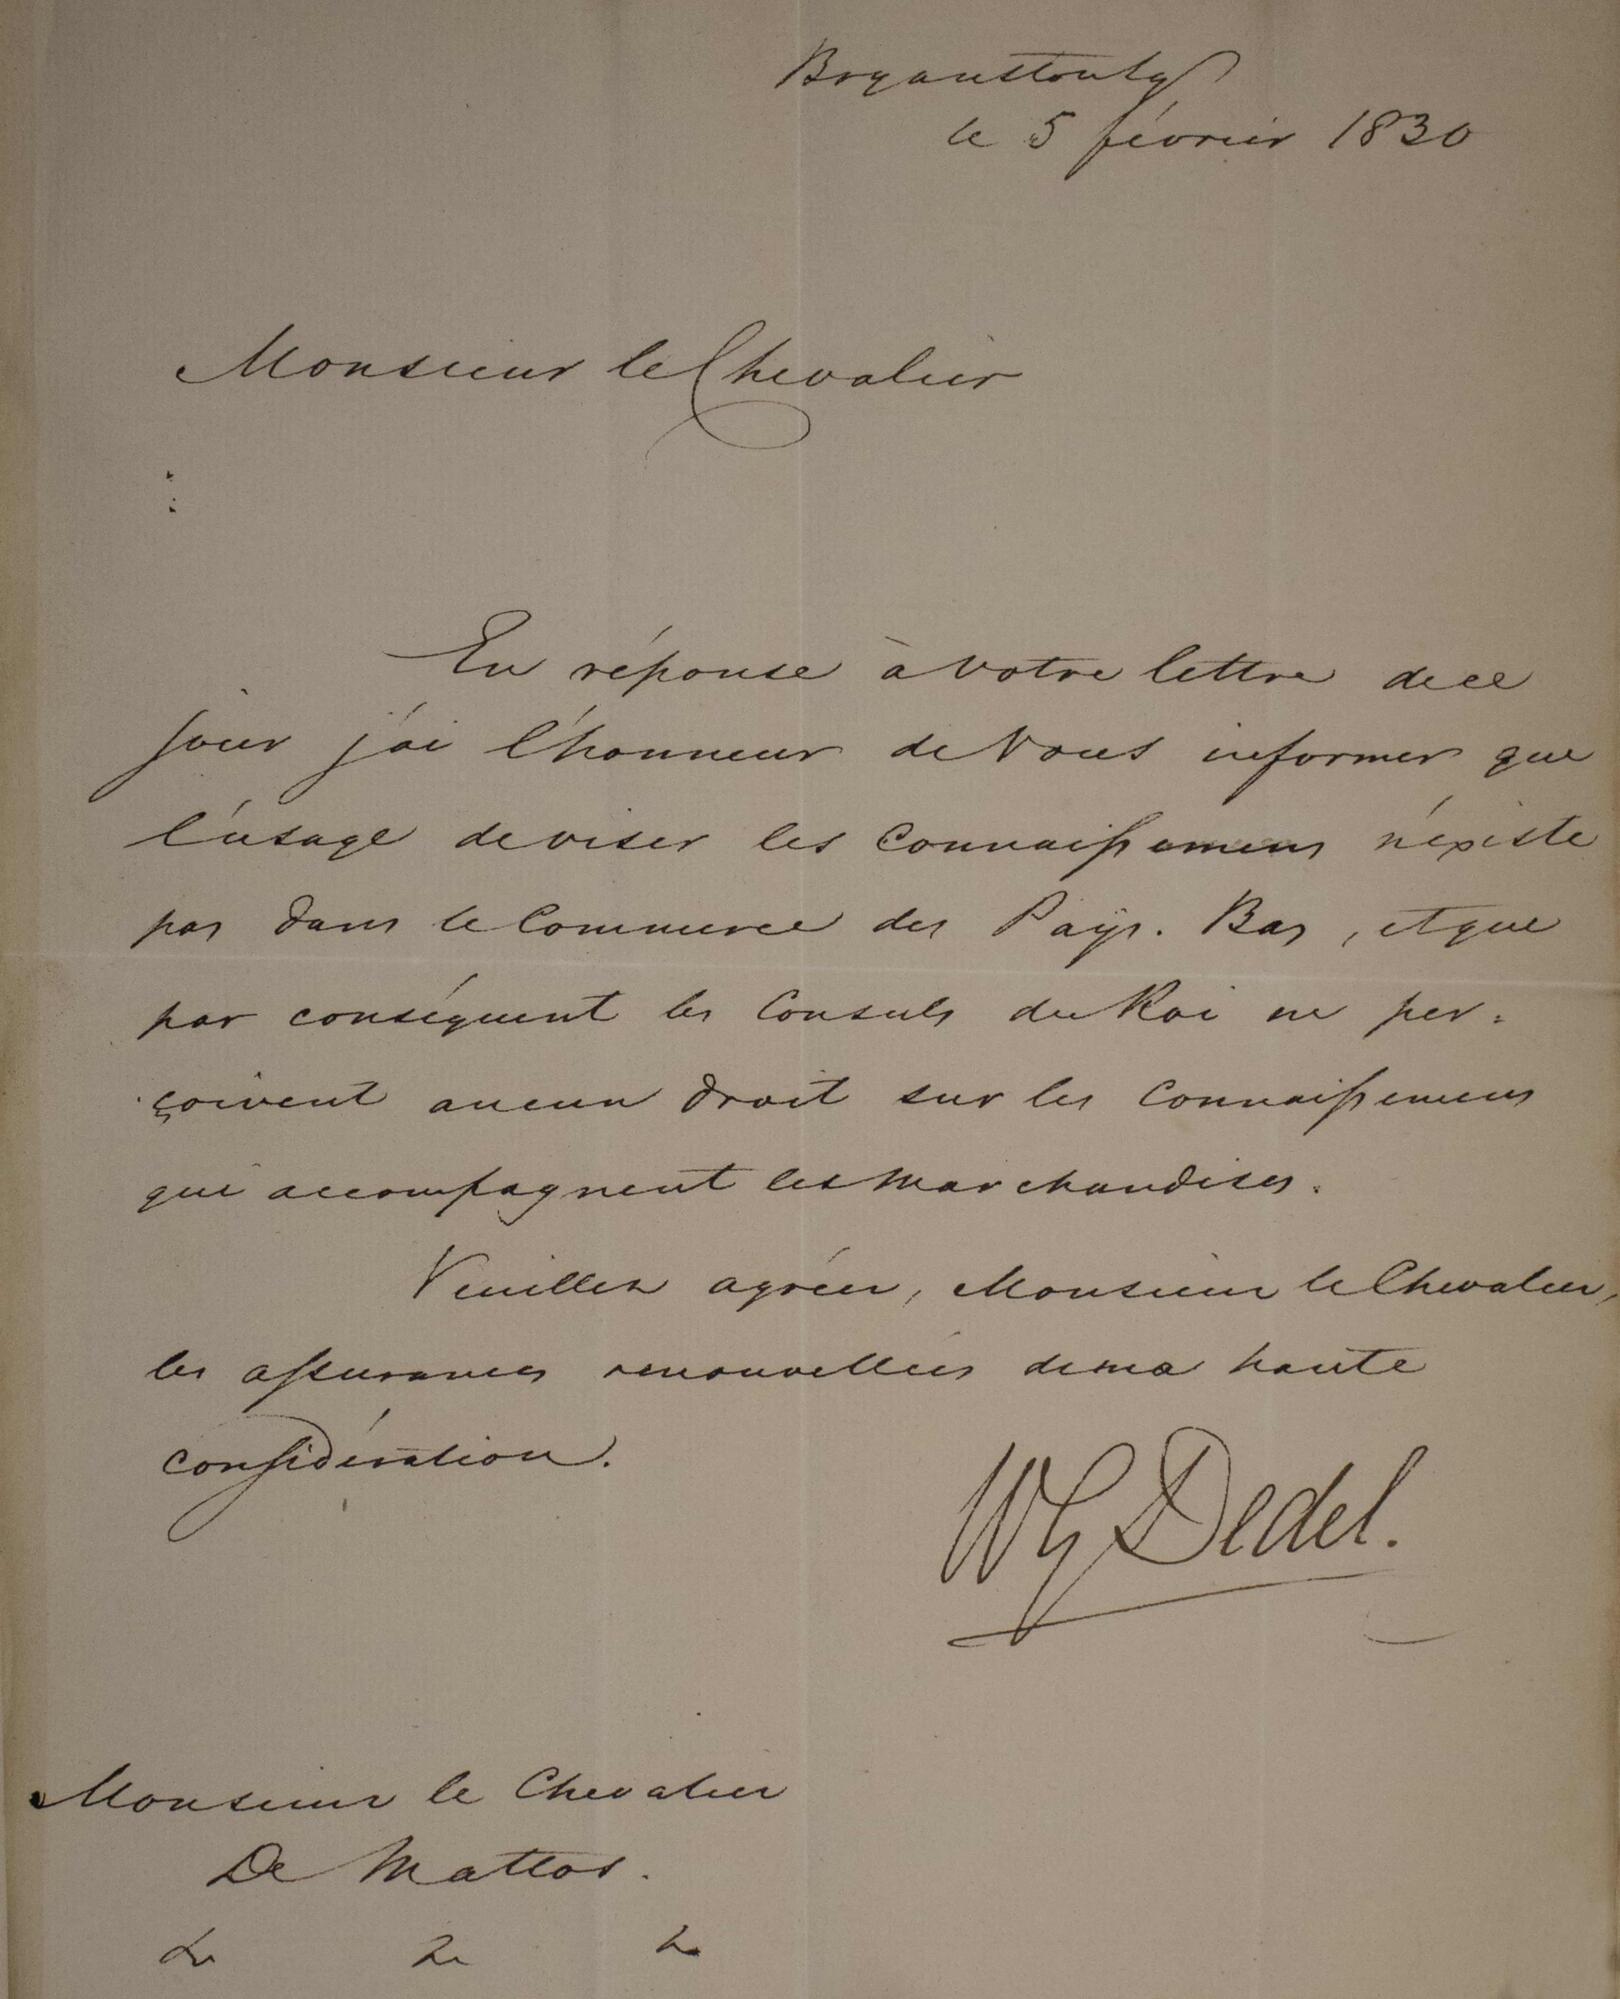 Bryanstonsq
le 5 février 1830
Monsieur le Chevalier
En réponse à Votre lettre de ce
jour j'ai l'honneur de Vous informer que
l'usage de viser les Connaissemens n'existe
pas dans le Commerce des Pays. Bas, et que
par conséquent les Consuls du Roi ne per=
çoivent aucun droit sur les Connaissemens
qui accompagnent les Marchandises.
Veuillez agréer, Monsieur le Chevalier,
les assurances renouvellées de ma haute
considération.
WG Dedel.
Monsieur le Chevalier
De Mattos.